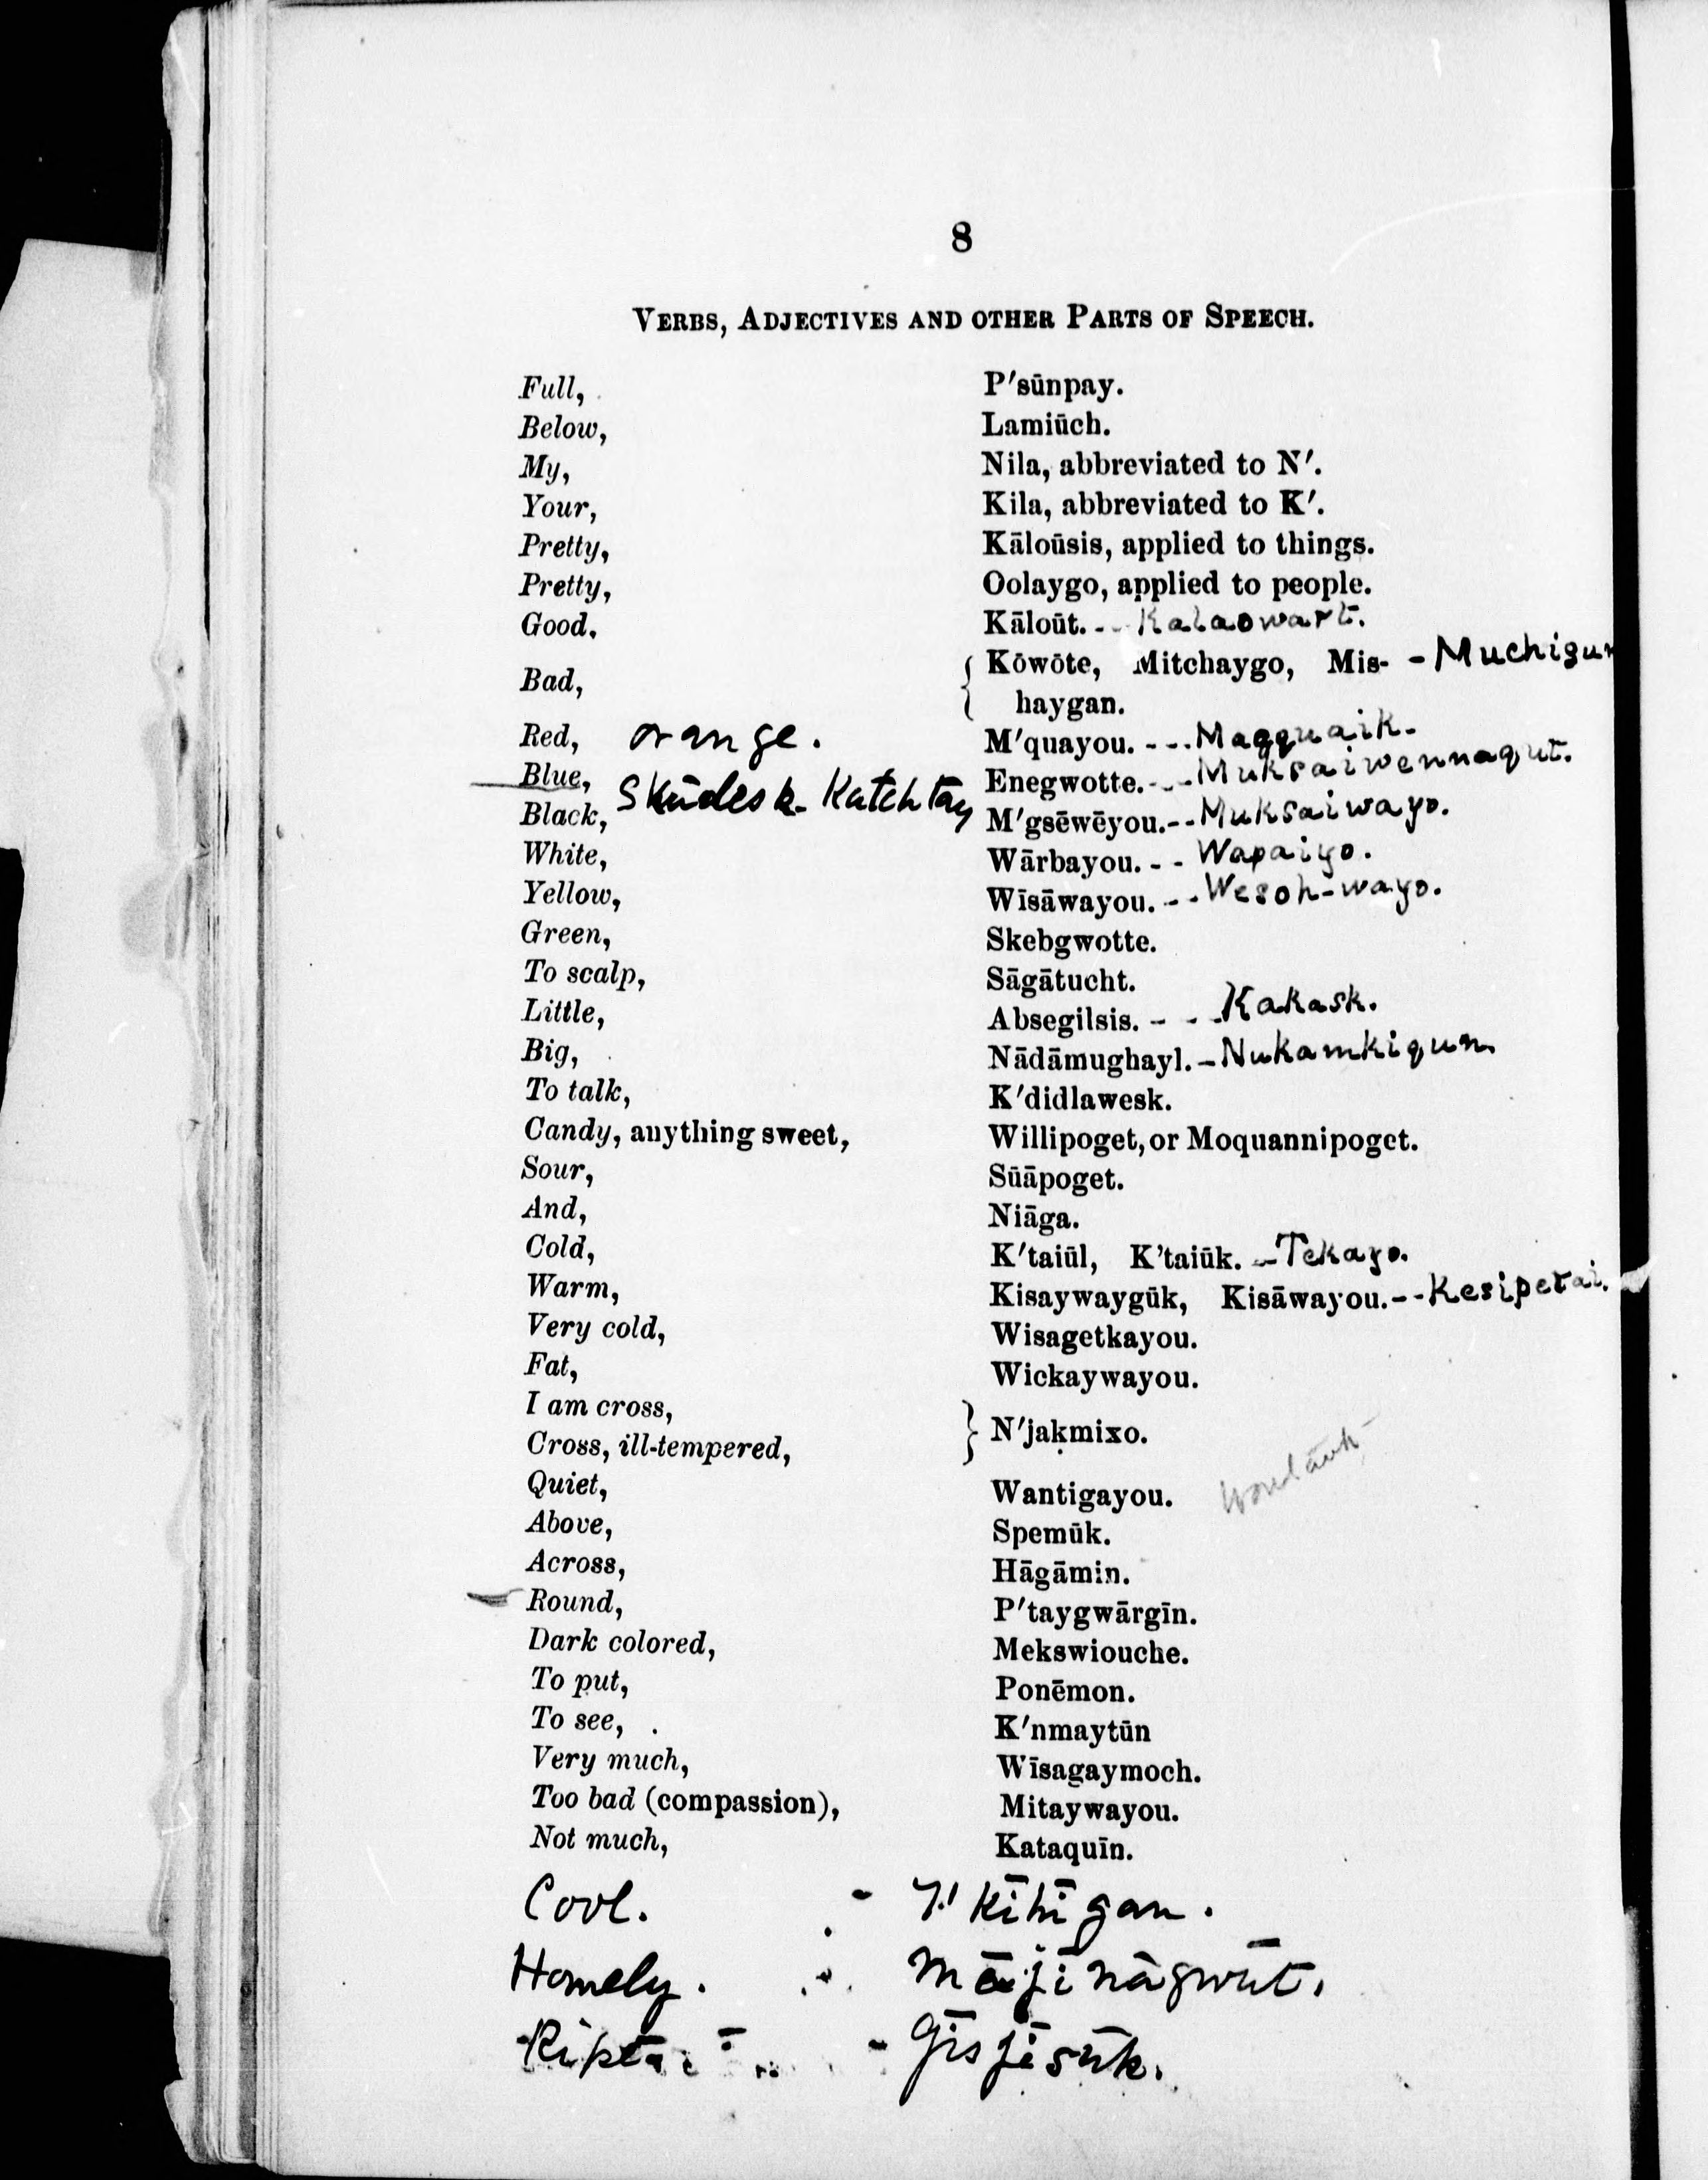 8
VERBS, ADJECTIVES AND OTHER PARTS OF SPEECH.
Full, P'sūnpay.
Below, Lamiūch.
My, Nila, abbreviated to N'.
Your, Kila, abbreviated to K'.
Pretty, Kāloūsis, applied to things.
Pretty, Oolaygo, applied to people.
Good, Kāloūt. - - Kalaowart.
Bad, { Kōwōte, Mitchaygo, Mis- - Muchigun
haygan.
Red, orange. M'quayou. - - - Magquaik.
Blue, Enegwotte. - - - Muksaiwennaqut.
Skūdesk- Katchtay
Black, M'gsēwēyou. - - Muksaiwayo.
White, Wārbayou. - - Wapaiyo.
Yellow, Wīsāwayou. - - Wesoh-wayo.
Green, Skebgwotte.
To scalp, Sāgātucht.
Little, Absegilsis. - - - Kakask.
Big, Nādāmughayl. - Nukamkiqun.
To talk, K'didlawesk.
Candy, anything sweet, Willipoget, or Moquannipoget.
Sour, Sūāpoget.
And, Niāga.
Cold, K'taiūl, K'taiūk. - Tekayo.
Warm, Kisaywaygūk, Kisāwayou. - - Kesipetai.
Very cold, Wisagetkayou.
Fat, Wickaywayou.
I am cross,
Cross, ill-tempered, } N'jakmixo.
Quiet, Wantigayou.
Above, Spemūk.
Across, Hāgāmin.
Round, P'taygwārgīn.
Dark colored, Mekswiouche.
To put, Ponēmon.
To see, K'nmaytūn
Very much, Wīsagaymoch.
Too bad (compassion), Mitaywayou.
Not much, Kataquīn.
Cool. - T'kīhīgan.
Homely. mājīnāgwūt.
- Gīsjīsūk.